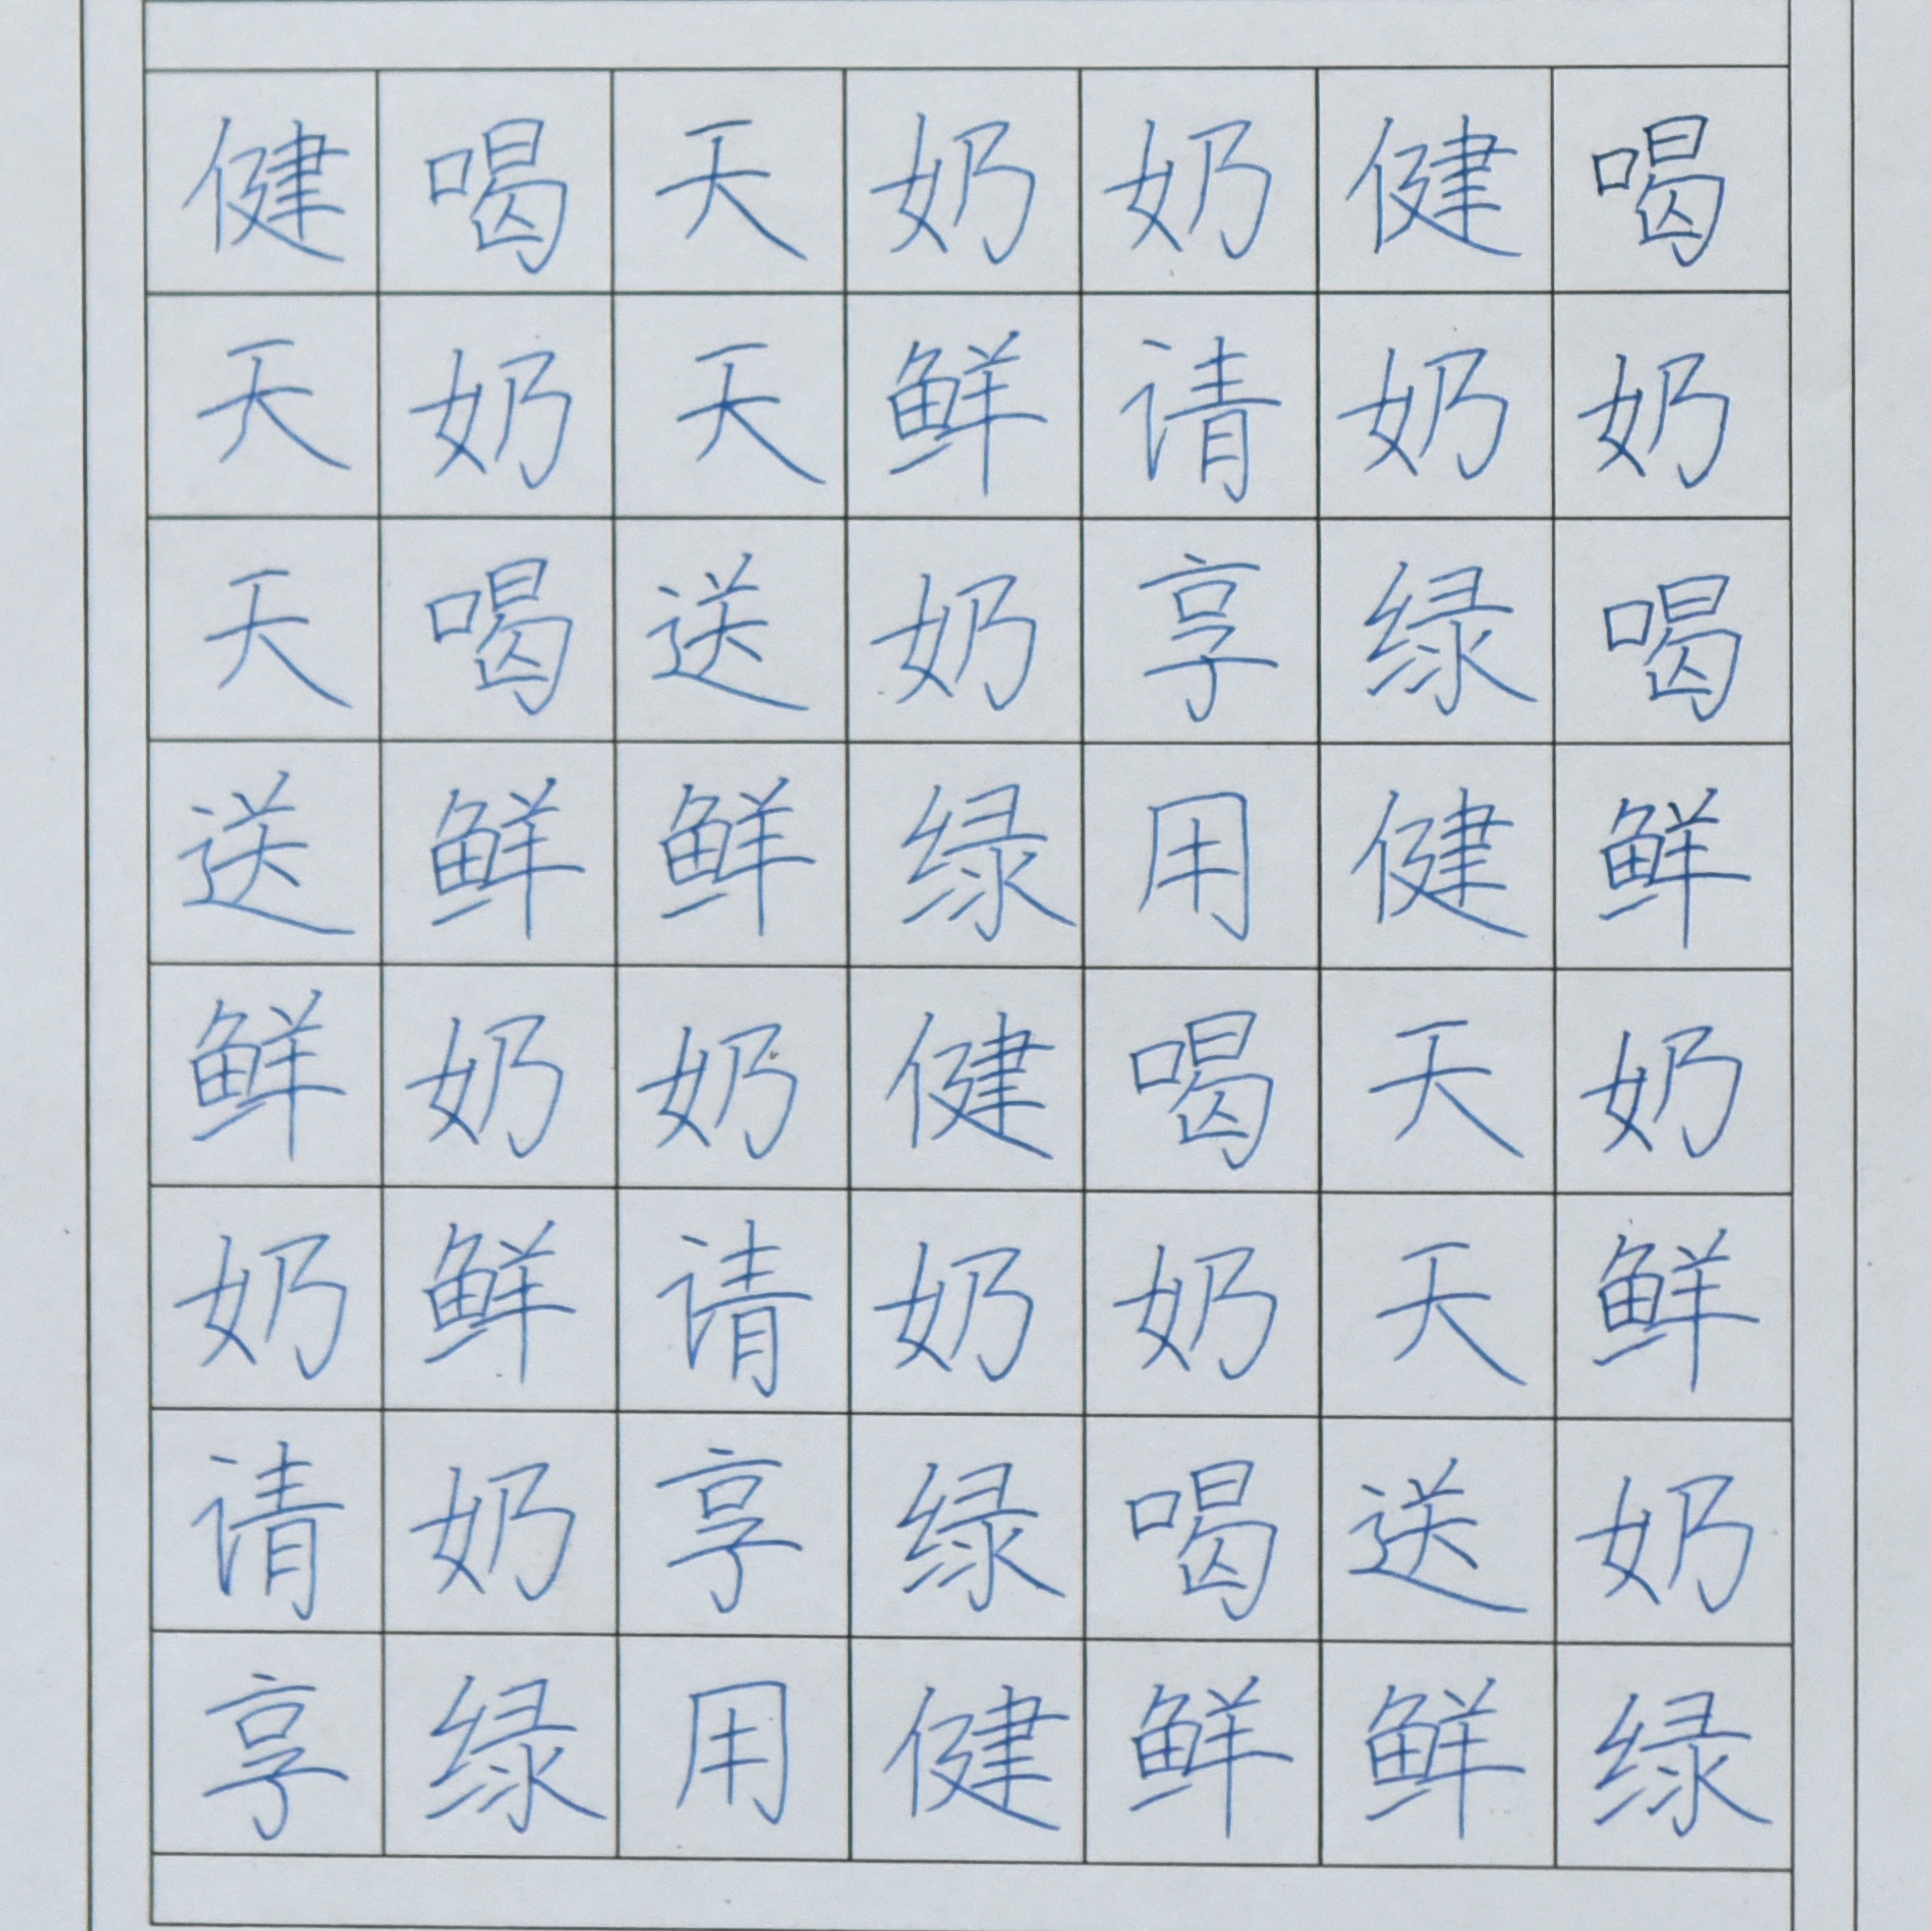 喝奶喝鲜奶鲜奶绿
健奶绿健天天送鲜
奶请享用喝奶喝鲜
奶鲜奶绿健奶绿健
天天送鲜奶请享用
喝奶喝鲜奶鲜奶绿
健天天送鲜奶请享